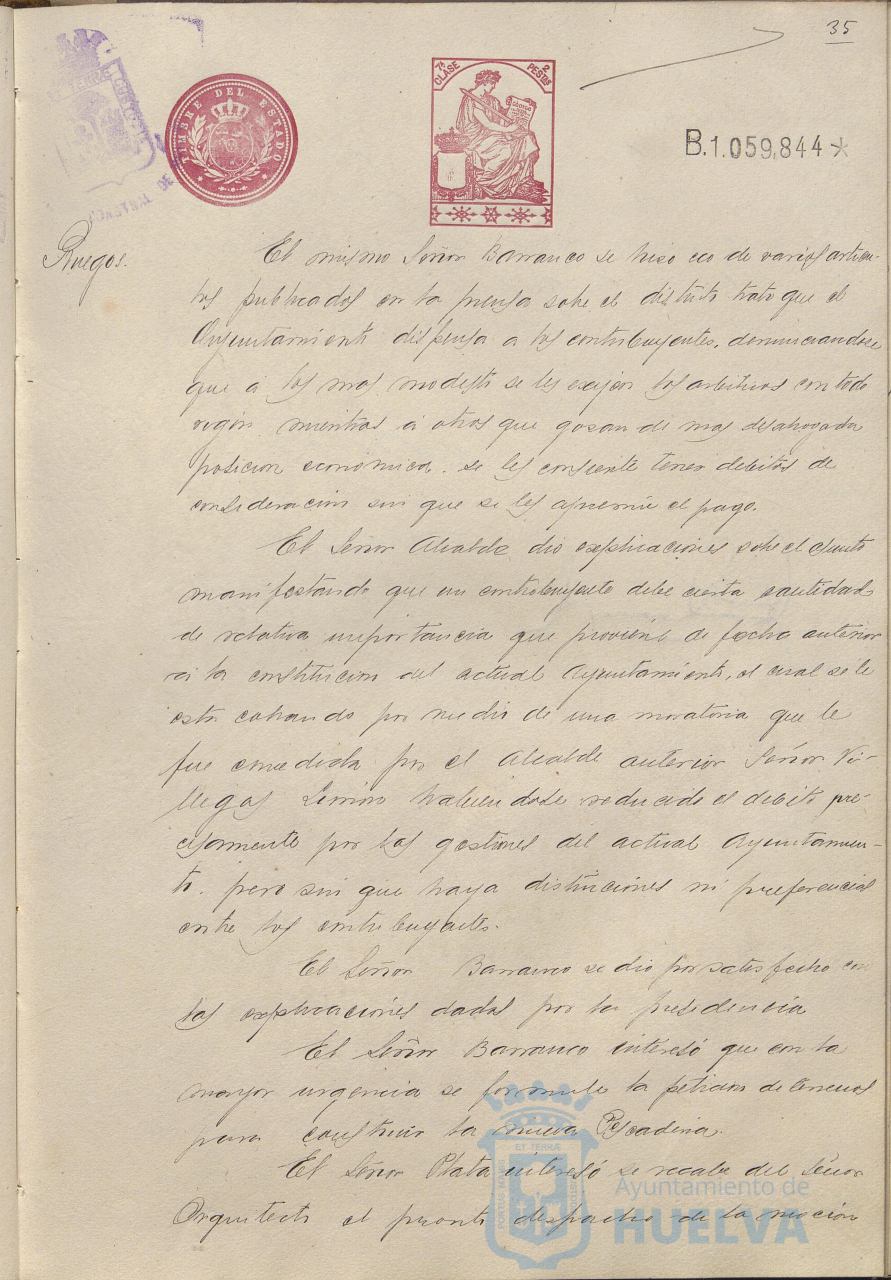 35
TIMBRE DEL ESTADO
7ª CLASE
2 PESTAS
B.1.059,844*
Ruegos.
El mismo Señor Barranco se hiso eco de varios articu-
los publicados en la prensa sobre el distinto trato que el
Ayuntamiento dispensa a los contribuyentes, denunciandose
que á los mas modestos se les exijen los arbitrios con todo
rigor mientras á otros que gosan de mas desahogada
posicion economica. se les consiente tener debitos de
consideracion sin que se les apremie el pago.
El Señor Alcalde dio explicaciones sobre el asunto
manifestando que un contribuyente debe cierta cantidad
de relativa importancia que proviene de fecha anterior
a la constitucion del actual Ayuntamiento, el cual se le
esta cobrando por medio de una moratoria que le
fue concedida por el Alcalde anterior Señor Vi-
llegas habiendose reducido el debito pre-
cisamente por las gestiones del actual Ayuntamien-
to. pero sin que haya distinciones ni preferencias
entre los contribuyentes.
El Señor Barranco se dio por satisfecho con
las explicaciones dadas por la presidencia
El Señor Barranco interesó que con la
mayor urgencia se formule la peticion de terrenos
para construir la nueva Pescaderia.
El Señor Plata interesó se recabe del Señor
Arquitecto el pronto despacho de la mocion
Ayuntamiento de
HUELVA